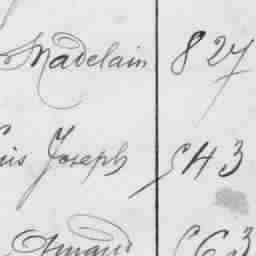 Madelain 827
Joseph 543
Amand 563